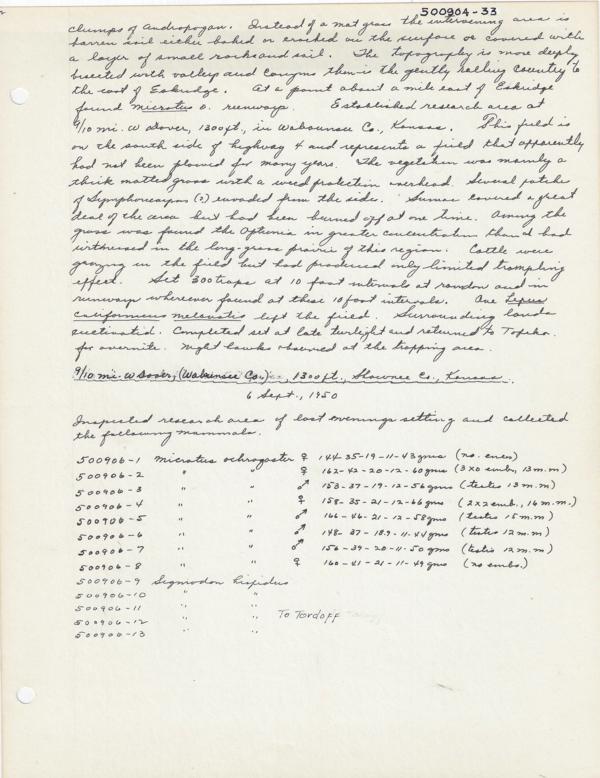 500904-33
clumps of Andropogon. Instead of a mat grass the intervening area is
barren soil either baked or cracked on the surface or covered with
a layer of small rocks and soil. The topography is more deeply
bisected with valleys and canyons then is the gently rolling country to
the east of Eskridge. At a point about a mile east of Eskridge
found Microtus o. runways. Established research area at
9/10 mi. W Dover, 1300 ft., in Wabaunsee Co., Kansas. This field is
on the south side of highway 4 and represents a field that apparently
had not been plowed for many years. The vegetation was mainly a
thick matted grass with a weed protection overhead. Several patches
of Symphoricarpos (?) invaded from the side. Sumac covered a great
deal of the area but had been burned off at one time. Among the
grass was found the in greater concentration than I had
witnessed in the long-grass prairie of this region. Cattle were
grazing in the field but had produced only limited trampling
effect. Set 300 traps at 10 foot intervals at random and in
runways wherever found at these 10 foot intervals. One Lepus
californicus melanotis left the field. Surrounding lands
cultivated. Completed set at late twilight and returned to Topeka
for overnite. Night hawks observed at the trapping area.
9/10 mi. W Dover, (Wabunsee Co.), 1300 ft., Shawnee Co., Kansas.
6 Sept., 1950
Inspected research area of last evenings setting and collected
the following mammals.
500906-1 Microtus ochrogaster ♀ 144-35-19-11-43 gms (no embs)
500906-2 " " ♀ 162-42-20-12-60 gms (3x0 emb, 13 m.m)
500906-3 " " ♂ 153-37-19-12-56 gms (testes 13 m.m)
500906-4 " " ♀ 158-35-21-12-66 gms (2x2 emb., 16 m.m.)
500906-5 " " ♂ 166-46-21-12-58 gms (testis 15 m.m)
500906-6 " " ♂ 148-37-18.9-11-44 gms (testis 12 m.m)
500906-7 " " ♂ 156-39-20-11-50 gms (testis 12 m.m)
500906-8 " " ♀ 160-41-21-11-49 gms (no embs.)
500906-9 Sigmodon hispidus
500906-10 " "
500906-11 " " To Tordoff
500906-12 " "
500906-13 " "